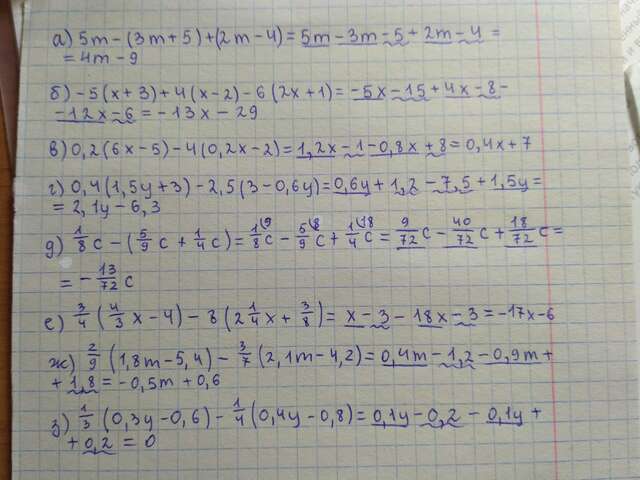 а) 5m - (3m + 5) + (2m - 4) = 5m - 3m - 5 + 2m - 4 =
= 4m - 9
б) -5(x + 3) + 4(x - 2) - 6(2x + 1) = -5x - 15 + 4x - 8 -
- 12x - 6 = -13x - 29
в) 0,2(6x - 5) - 4(0,2x - 2) = 1,2x - 1 - 0,8x + 8 = 0,4x + 7
г) 0,4(1,5y + 3) - 2,5(3 - 0,6y) = 0,6y + 1,2 - 7,5 + 1,5y =
= 2,1y - 6,3
д) 1/8 c - (5/9 c + 1/4 c) = 1/8 (9 c - 5/9 (8 c + 1/4 (18 c = 9/72 c - 40/72 c + 18/72 c =
= - 13/72 c
е) 3/4 (4/3 x - 4) - 8(2 1/4 x + 3/8) = x - 3 - 18x - 3 = -17x - 6
ж) 2/9 (1,8m - 5,4) - 3/7 (2,1m - 4,2) = 0,4m - 1,2 - 0,9m +
+ 1,8 = -0,5m + 0,6
з) 1/3 (0,3y - 0,6) - 1/4 (0,4y - 0,8) = 0,1y - 0,2 - 0,1y +
+ 0,2 = 0